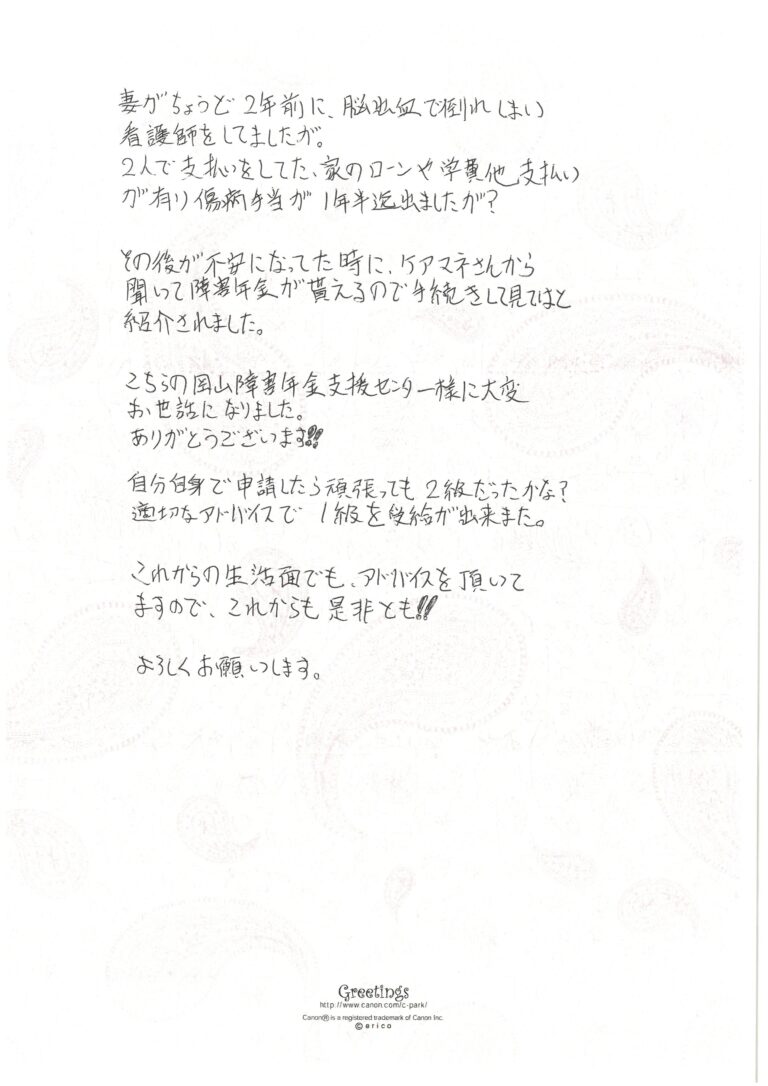 妻がちょうど2年前に、脳出血で倒れしまい
看護師をしてましたが。
2人で支払いをしてた、家のローンや学費他、支払い
が有り傷病手当が1年半迄出ましたが?
その後が不安になってた時に、ケアマネさんから
聞いて障害年金が貰えるので手続きして見てはと
紹介されました。
こちらの岡山障害年金支援センター様に大変
お世話になりました。
ありがとうございます!!
自分自身で申請したら頑張っても2級だったかな?
適切なアドバイスで1級を受給が出来また。
これからの生活面でも、アドバイスを頂いて
ますので、これからも是非とも!!
よろしくお願いします。
Greetings
http://www.canon.com/c-park/
Canon® is a registered trademark of Canon Inc.
© erico